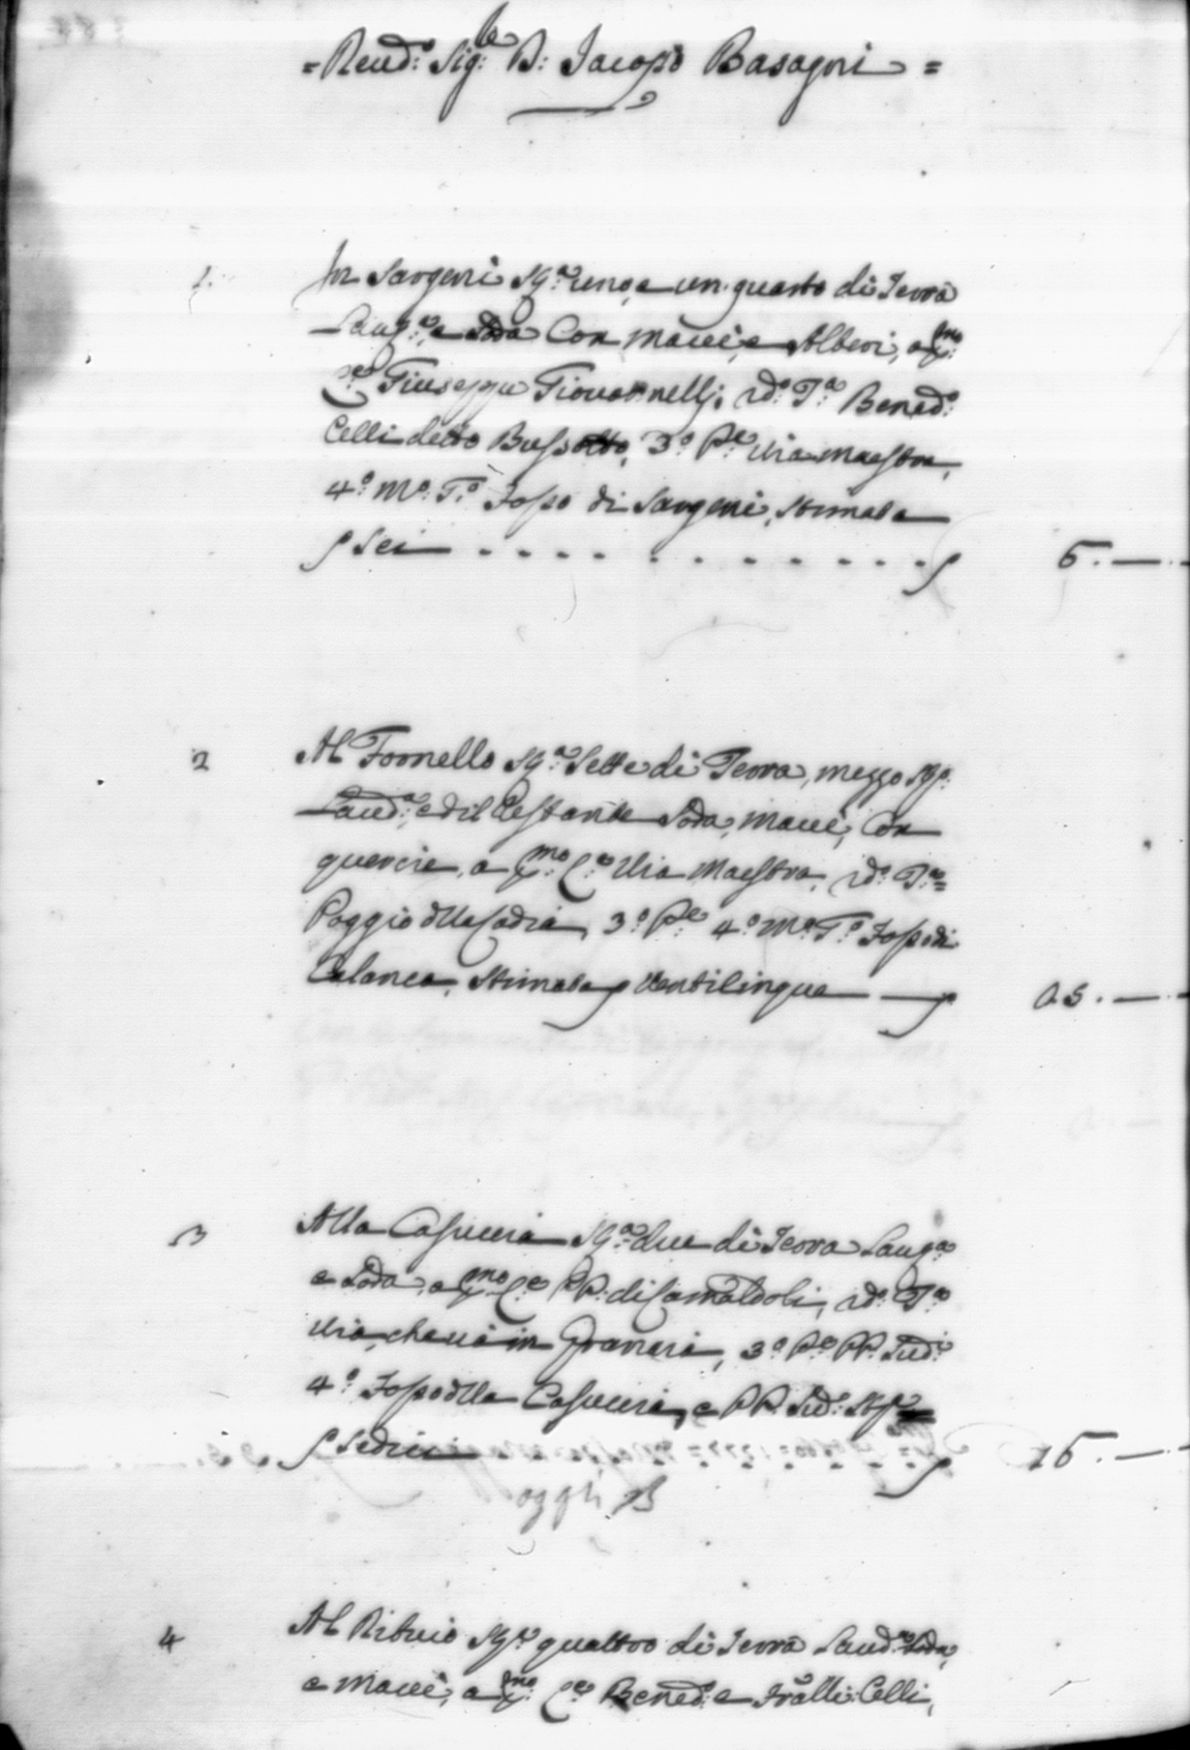 = Reved.o Sig.le D: Jacopo Basagni =
1. In Sargeni Sg.a uno, e un quarto di Terra
Laug.a, e Soda Con macci, e Alberi, a p.mo
C.e Giuseppe Giovannelli, 2.do T.a Bened.o
Celli detto Bussotto, 3.o P.e Via maestra,
4.o M.o T.o Fosso di Sargeni, stimata
p Sei - - - - - - - - - - - p 6. —
2 Al Fornello Sg.a Sette di Terra, mezzo
Laud.a, ed il Restante Soda, macci, Con
quercie, a p.mo C.a Via Maestra, 2.do T.a =
Poggio dlla 3.o P.e 4.o M.o T.o Fosso di
Calanca, stimata p Venticinque — p 25. —
3 Alla Casuccia Sg.a due di Terra Laug.a
e Soda, a p.mo C.e PP. di Camaldoli, 2.do T.a
Via, che và in 3.o P.e PP. Sud.i
4.o Fosso dlla Casuccia, e PP. Sud.i
p Sedici p 16. —
4 Al Sg.a quattro di Terra Laud.a Soda,
e macci, a p.mo C.e Bened.o e Fralli Celli,